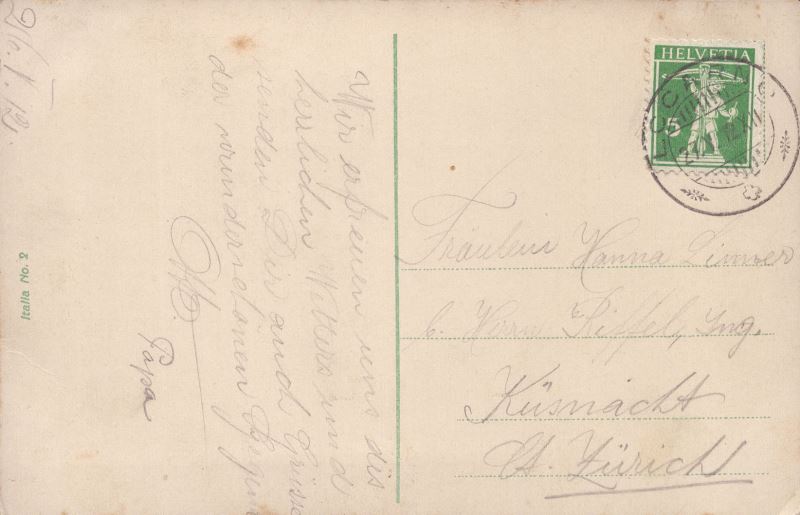 26. V. 12.
Wir erfreuen uns des
herrlichen Wetters und
senden Dir auch Grüsse
der wunderschönen Gegend
M.
Papa
Italia No. 2
HELVETIA
5
Fräulein Hanna Limmer
b. Herrn Riffel, Ing.
Küsnacht
Ct. Zürich